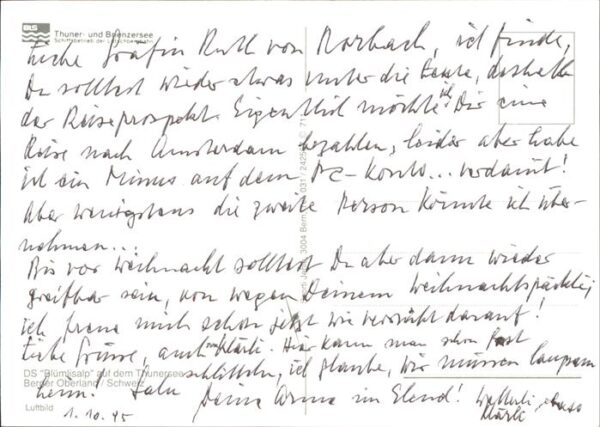 BLS
Thuner- und Brienzersee
Schiffsbetrieb der Lötschbergbahn
Liebe Gräfin Ruth von Rorbach, ich finde,
Du solltest wieder etwas unter die Leute, deshalb
der Reiseprospekt. Eigentlich möchte ich Dir eine
Reise nach Amsterdam bezahlen, leider aber habe
ich ein Minus auf dem PC-Konto... verdammt!
Aber wenigstens die zweite Person könnte ich über-
nehmen...
Bis vor Weihnacht solltest Du aber dann wieder
greifbar sein, von wegen Deinem Weihnachtspäckli,
ich freue mich schon jetzt wie verrückt darauf!
Liebe Grüsse, auch an Klärli. Hier kann man schon fast
schlitteln, ich glaube, wir müssen langsam
heim! Deine Arme im Elend!
DS "Blümlisalp" auf dem Thunersee
Berner Oberland / Schweiz
Luftbild
1.10.95
3004 Bern
031/